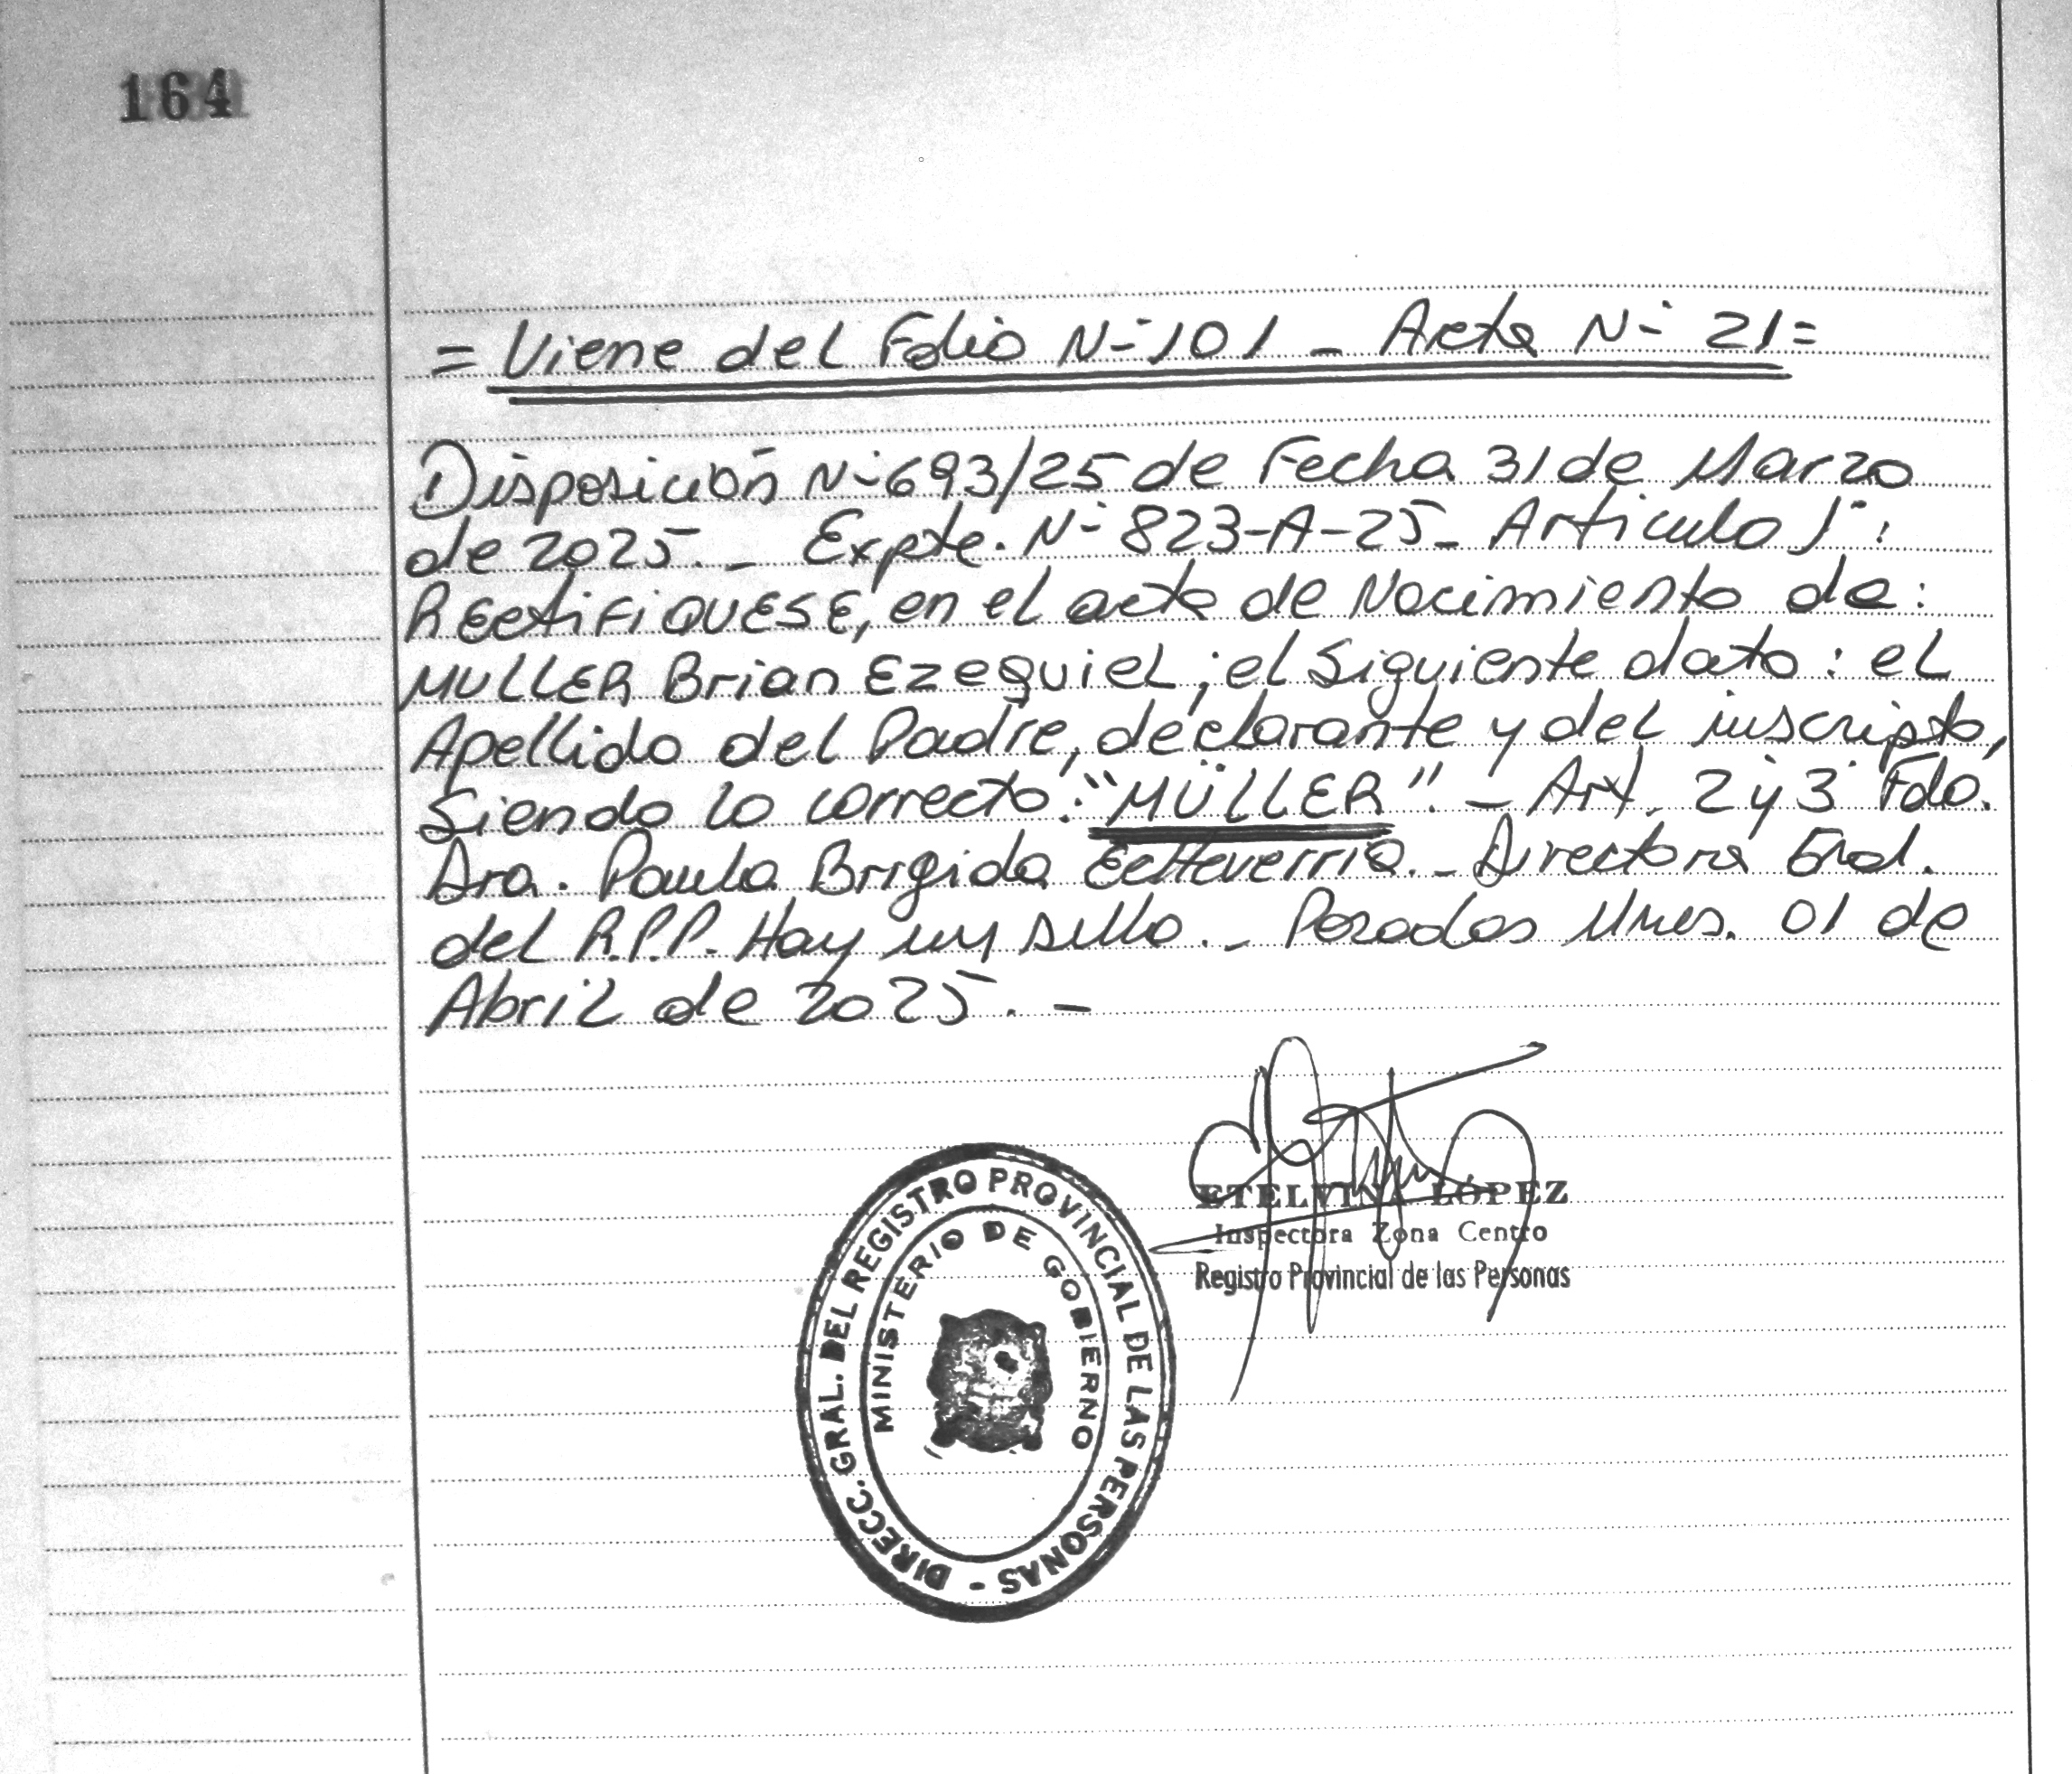 164
= Viene del Folio N-° 101 - Acta N-° 21 =
Disposición N-° 693/25 de Fecha 31 de Marzo
de 2025. - Expte. N-° 823-A-25 - Articulo 1°:
RECTIFIQUESE, en el acta de Nacimiento de:
MULLER Brian Ezequiel; el siguiente dato: el
Apellido del Padre, declarante y del inscripto,
siendo lo correcto: "MÜLLER". - Art. 2° y 3° Fdo.
Dra. Paula Brigida Echeverria. - Directora Gral.
del R.P.P. Hay un sello. - Posadas Mnes. 01 de
Abril de 2025. -
ETELVINA LÓPEZ
Inspectora Zona Centro
Registro Provincial de las Personas
DIRECC. GRAL. DEL REGISTRO PROVINCIAL DE LAS PERSONAS -
MINISTERIO DE GOBIERNO